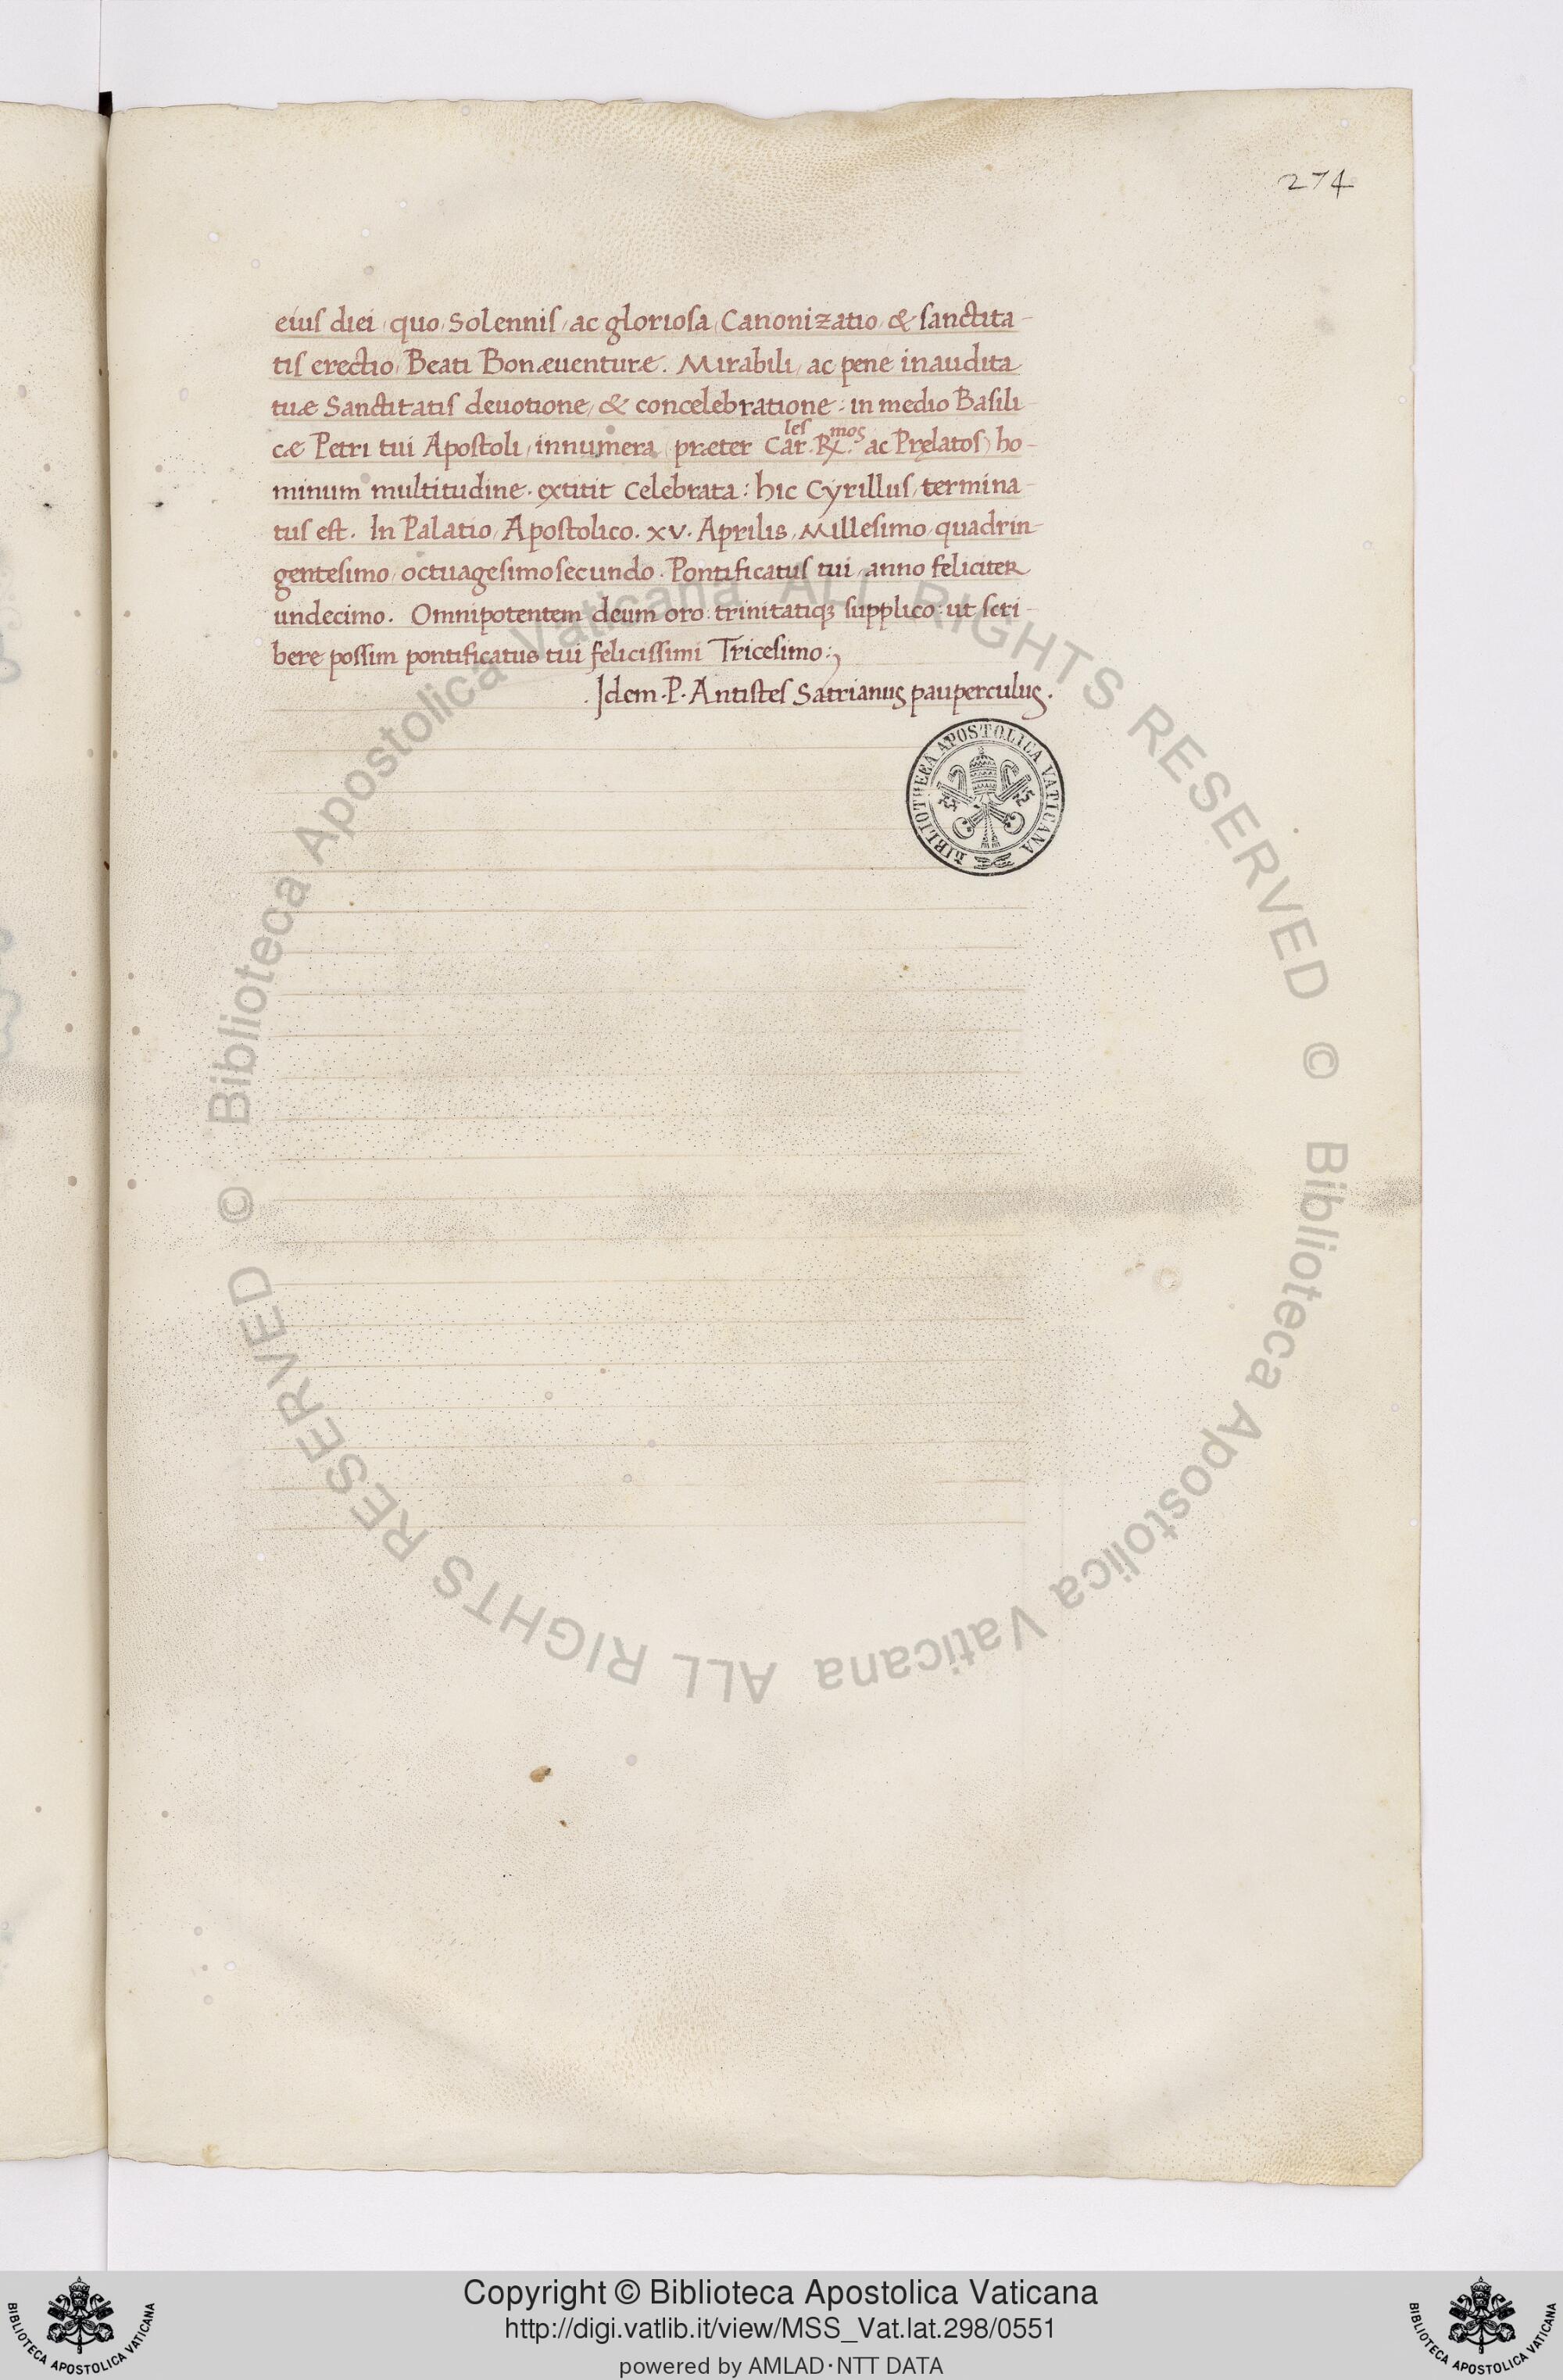 274
eius diei, quo, Solennis, ac gloriosa, Canonizatio, & sanctita-
tis erectio, Beati Bonæuenturæ. Mirabili, ac pene inaudita
tuæ Sanctitatis deuotione, & concelebratione: in medio Basili-
cæ Petri tui Apostoli, innumera, præter Car.les R.mos ac Pręlatos) ho-
minum multitudine. extitit Celebrata: hic Cyrillus, termina-
tus est. In Palatio, Apostolico. xv. Aprilis, Millesimo, quadrin-
gentesimo, octuagesimosecundo. Pontificatus tui, anno feliciter
undecimo. Omnipotentem deum oro. trinitatiqꝫ supplico: ut scri-
bere possim pontificatus tui felicissimi Tricesimo:,
.Idem. P. Antistes Satrianus pauperculus.
BIBLIOTHECA APOSTOLICA VATICANA
© Biblioteca Apostolica Vaticana ALL RIGHTS RESERVED © Biblioteca Apostolica Vaticana ALL RIGHTS RESERVED
Copyright © Biblioteca Apostolica Vaticana
http://digi.vatlib.it/view/MSS_Vat.lat.298/0551
powered by AMLAD·NTT DATA
BIBLIOTECA APOSTOLICA VATICANA
BIBLIOTECA APOSTOLICA VATICANA